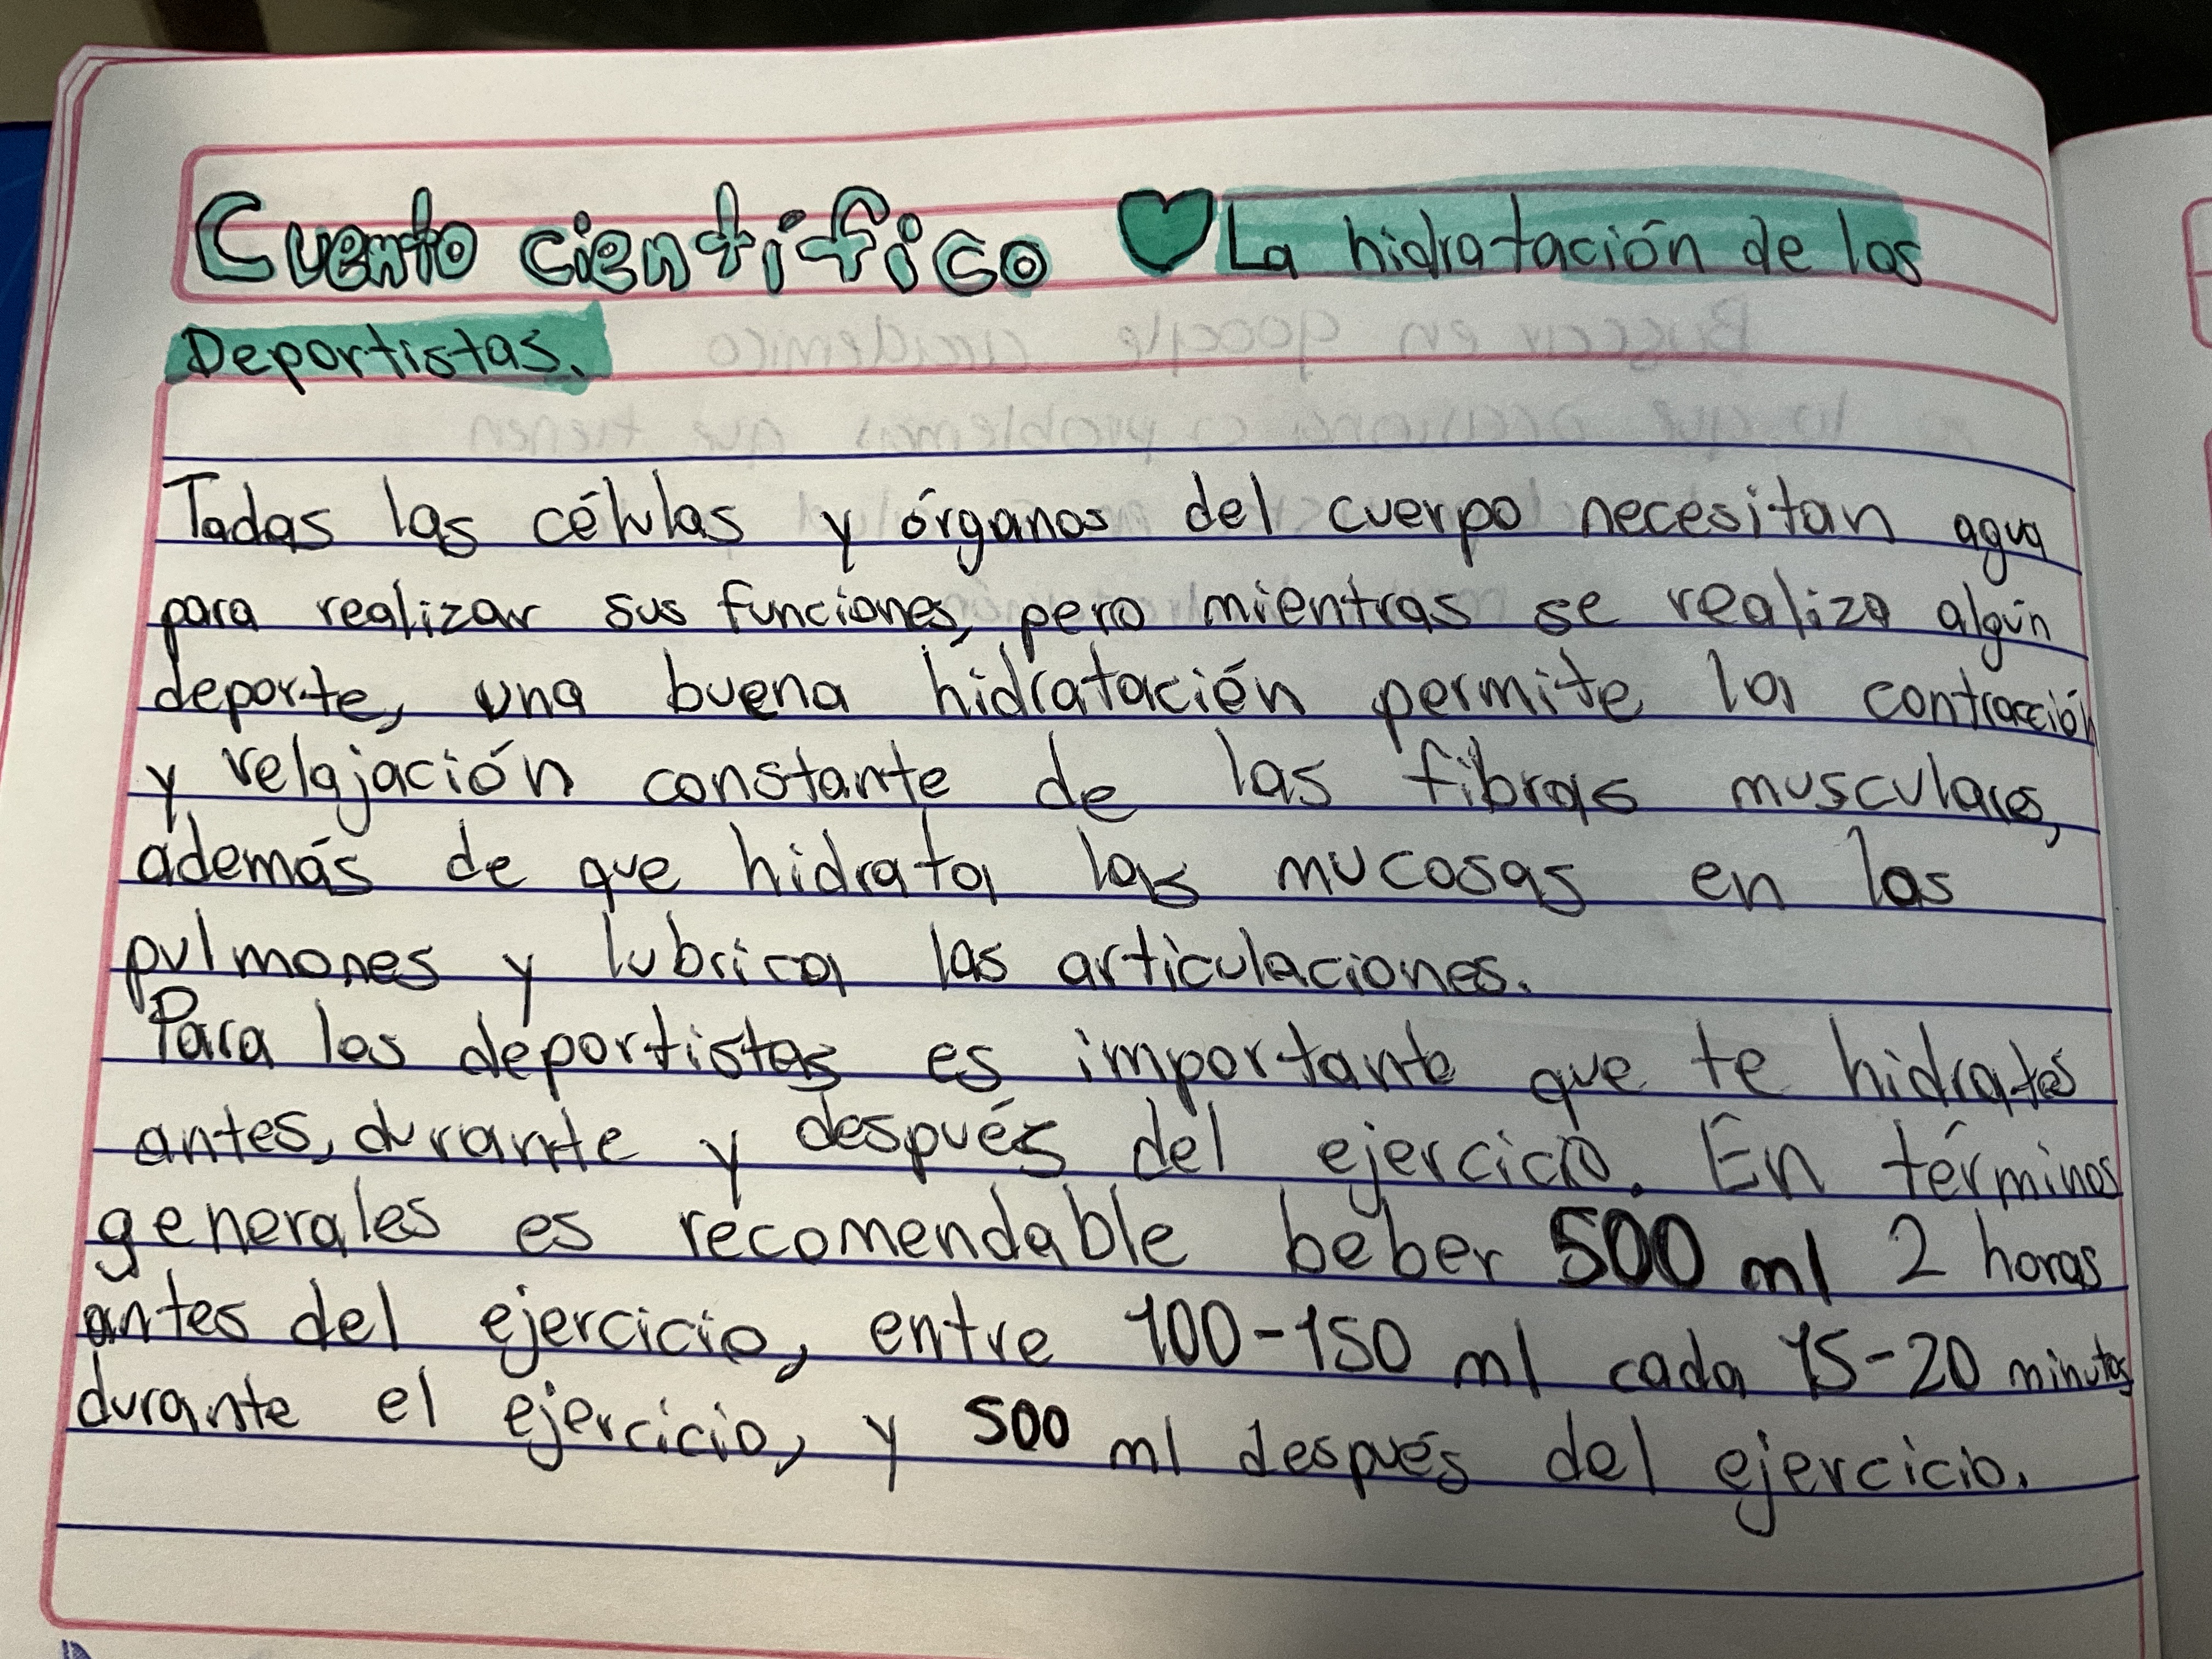 Cuento científico ♥ La hidratación de los
Deportistas.
Todas las células y órganos del cuerpo necesitan agua
para realizar sus funciones, pero mientras se realiza algún
deporte, una buena hidratación permite la contracción
y relajación constante de las fibras musculares,
además de que hidrata las mucosas en los
pulmones y lubrica las articulaciones.
Para los deportistas es importante que te hidrates
antes, durante y después del ejercicio. En términos
generales es recomendable beber 500 ml 2 horas
antes del ejercicio, entre 100-150 ml cada 15-20 minutos
durante el ejercicio, y 500 ml después del ejercicio.